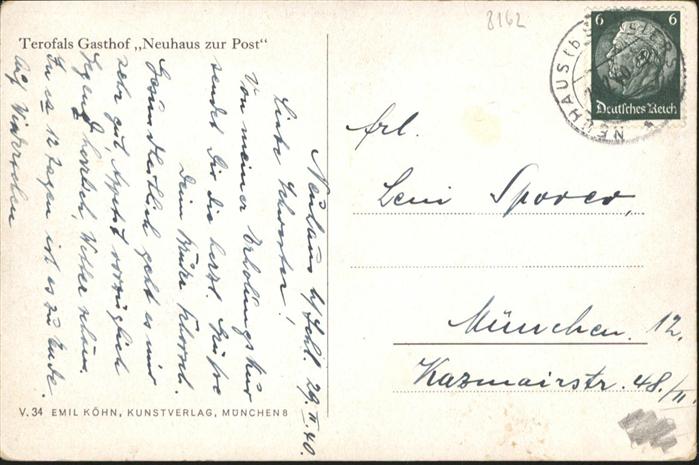 8162
Terofals Gasthof „Neuhaus zur Post“
6 6
Deutsches Reich
NEUHAUS (b.
Neuhaus b/Schl. 29.II.40.
Liebe Schwester!
Von meiner Erholungskur
sendet Dir die herzl. Grüße
Dein Bruder
Gesundheitlich geht es mir
sehr gut, Appetit vorzüglich
Gegend herrlich, Wetter schön.
In ca 12 Tagen ist es zu Ende.
Auf Wiedersehen
Frl.
Leni Sporer,
München. 12.
Kazmairstr. 48./II.
V. 34 EMIL KÖHN, KUNSTVERLAG, MÜNCHEN 8